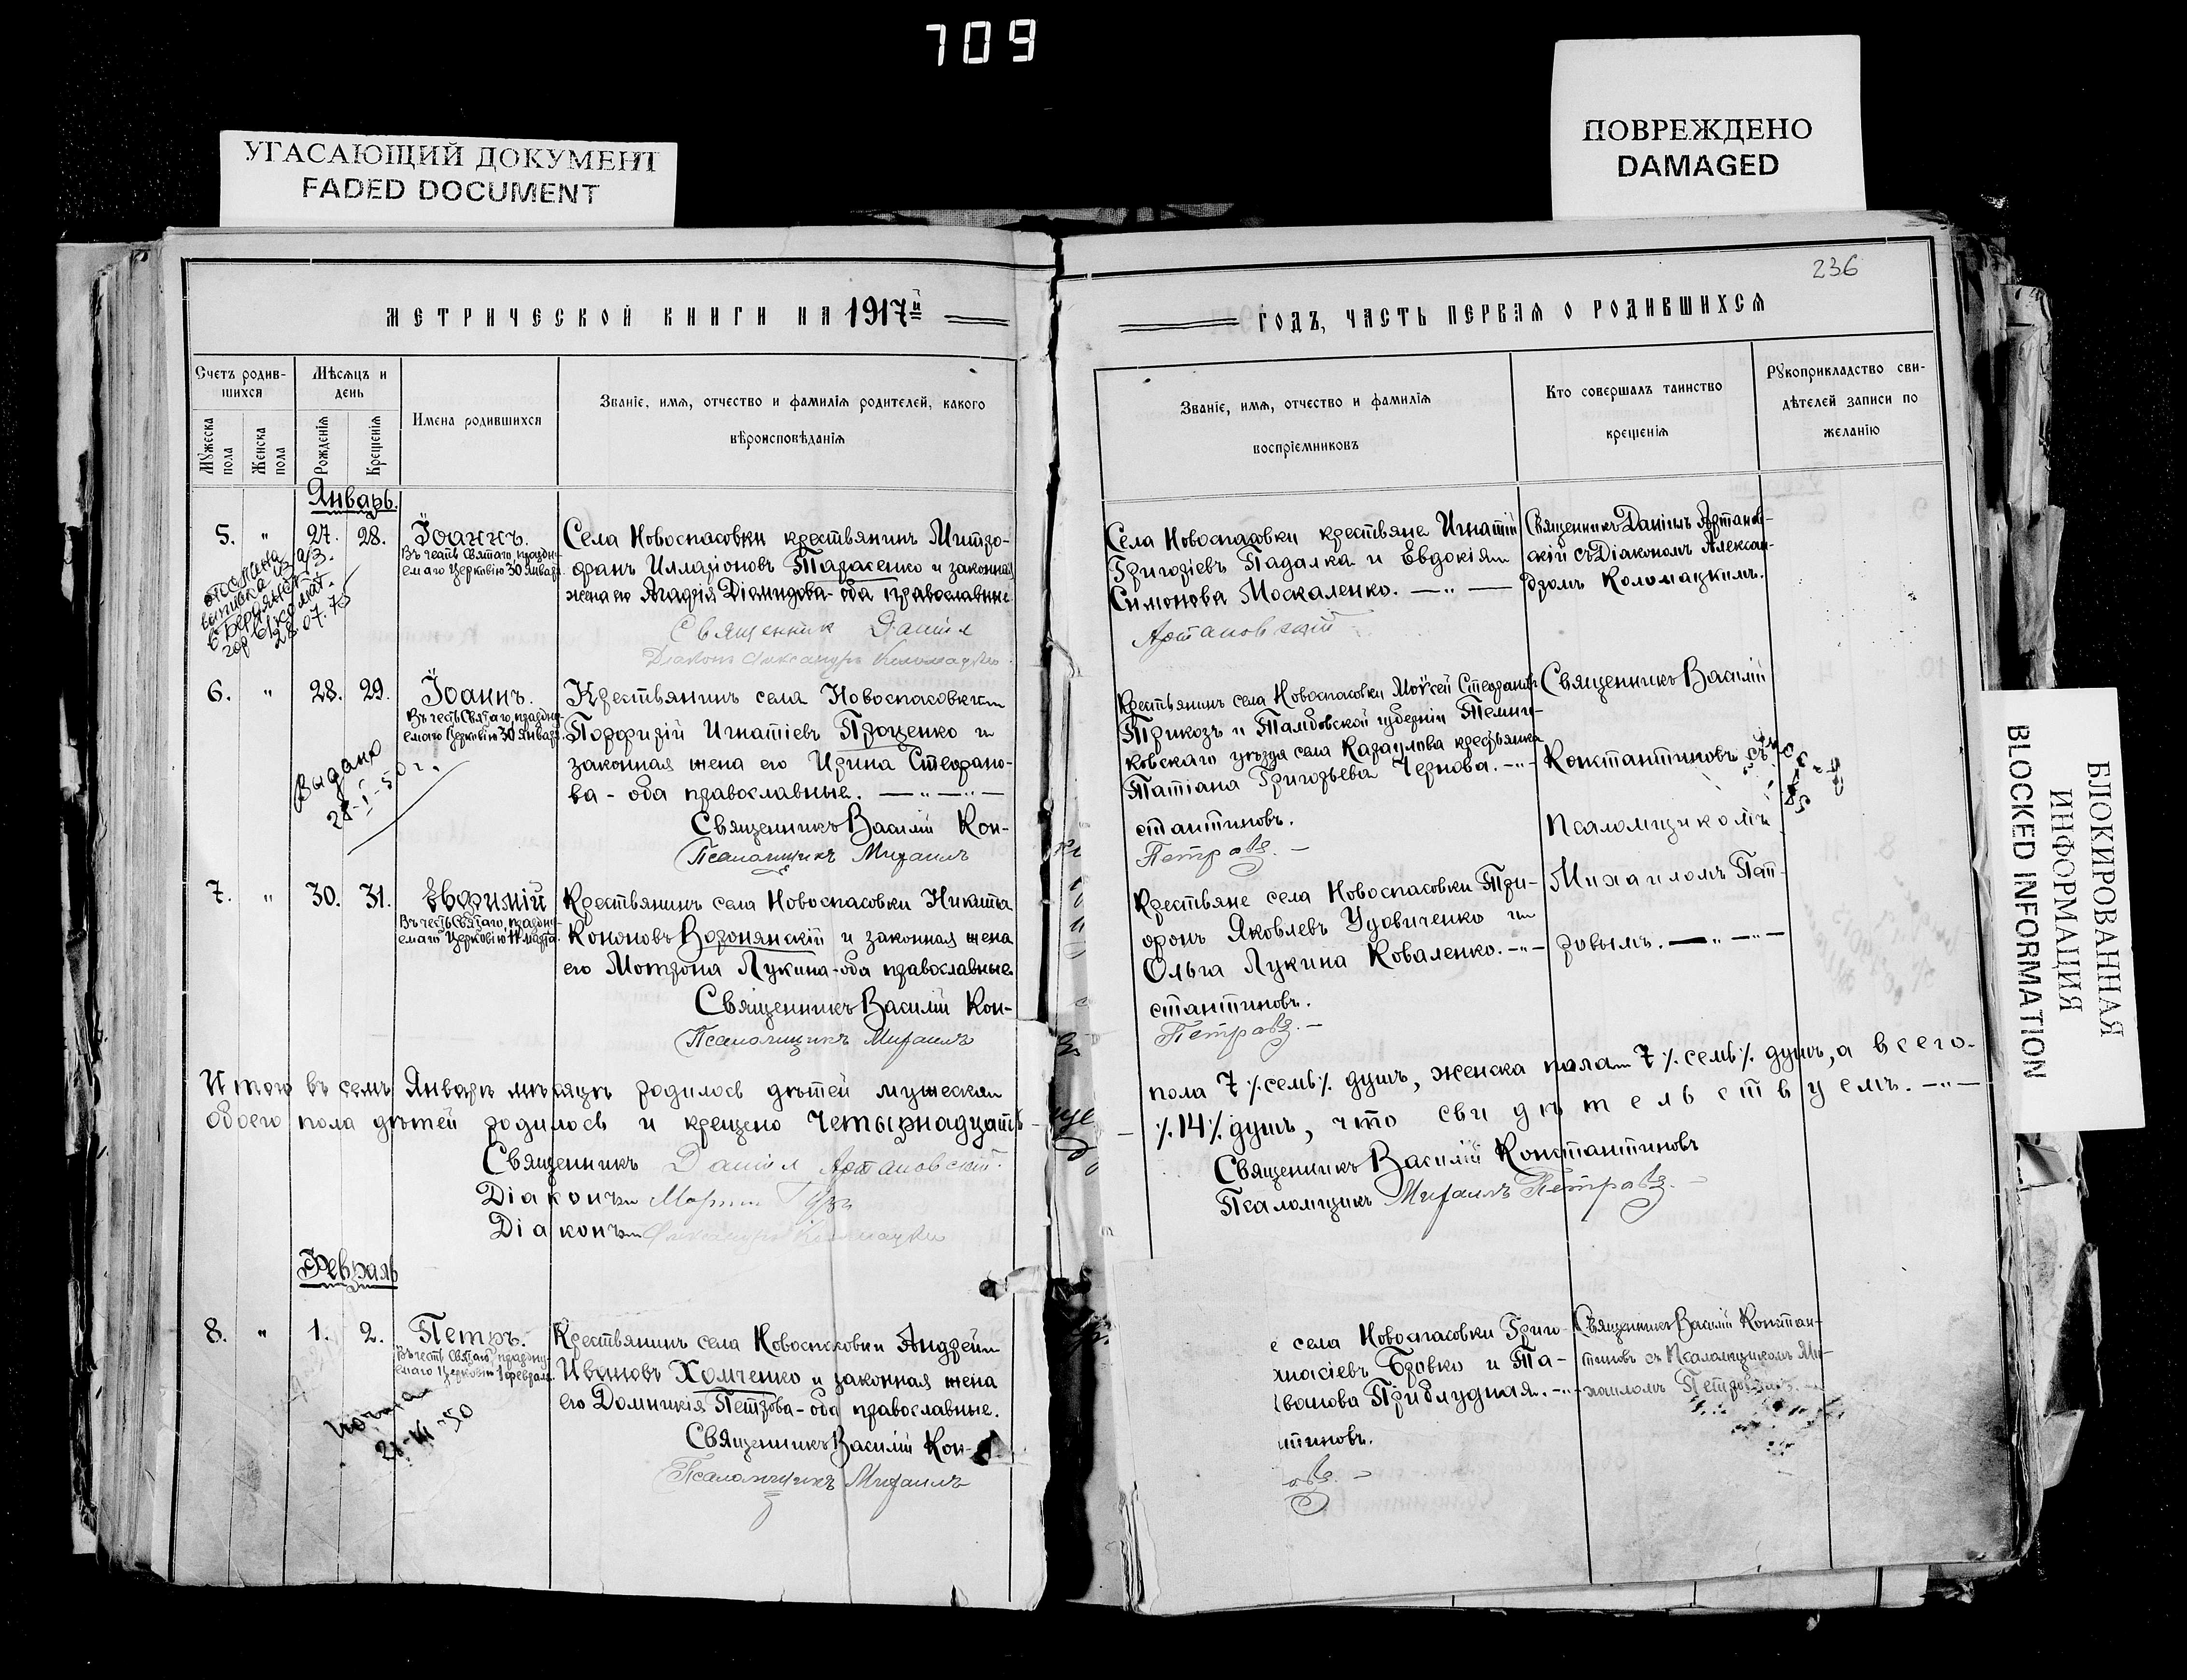 709
УГАСАЮЩИЙ ДОКУМЕНТ
FADED DOCUMENT
ПОВРЕЖДЕНО
DAMAGED
БЛОКИРОВАННАЯ
ИНФОРМАЦИЯ
BLOCKED INFORMATION
236
МЕТРИЧЕСКОЙ КНИГИ НА 1917й
ГОДЪ, ЧАСТЬ ПЕРВАЯ О РОДИВШИХСЯ
Счетъ родив-
шихся
Мужеска пола
Женска пола
Мѣсяцъ и
день
Рожденія
Крещенія
Имена родившихся
Званіе, имя, отчество и фамилія родителей, какого
вѣроисповѣданія
Званіе, имя, отчество и фамилія
воспріемниковъ
Кто совершалъ таинство
крещенія
Рукоприкладство сви-
дѣтелей записи по
желанію
Январь.
5. " 27. 28. Іоаннъ.
Въ честь Святаго, праздну-
емаго Церковію 30 января.
28.07.75
Села Новоспасовки крестьянинъ Митро-
фанъ Илларіоновъ Тарасенко и законная
жена его Агафія Діомидова - оба православные.
Священник Даніил
Діаконъ Александръ Коломацкій
Села Новоспасовки крестьяне Игнатій
Григоріевъ Падалка и Евдокія
Симонова Москаленко. — " —
Артановскій
Священникъ Даніилъ Артанов-
скій съ Діакономъ Алексан-
дромъ Коломацкимъ.
6. " 28. 29. Іоаннъ.
Въ честь Святаго, праздну-
емаго Церковію 30 января.
Выдано
28-I-50 г.
Крестьянинъ села Новоспасовки
Порфирій Игнатіевъ Проценко и
законная жена его Ирина Стефано-
ва - оба православные. — " — " —
Священникъ Василій Кон-
Псаломщикъ Михаилъ
Крестьянинъ села Новоспасовки Моѵсей Стефановъ
Трикозъ и Тамбовской губерніи Темни-
ковскаго уѣзда села Караулова крестьянка
Татіана Григорьева Чернова. — " —
стантиновъ.
Петровъ. —
Священникъ Василій
Константиновъ съ
Псаломщикомъ
Михаиломъ Пет-
ровымъ. — " — " —
7. " 30. 31. Евфимій
Въ честь Святаго, праздну-
емаго Церковію 11 марта.
Крестьянинъ села Новоспасовки Никита
Кононовъ Воронянскій и законная жена
его Мотрона Лукина - оба православные.
Священникъ Василій Кон-
Псаломщикъ Михаилъ
Крестьяне села Новоспасовки Три-
фонъ Яковлевъ Удовиченко и
Ольга Лукина Коваленко. — " —
стантиновъ.
Петровъ. —
Итого въ семъ Январѣ мѣсяцѣ родилось дѣтей мужеска
пола 7 ⁒ семь ⁒ душъ, женска пола 7 ⁒ семь ⁒ душъ, а всего
обоего пола дѣтей родилось и крещено четырнадцать
— ⁒ 14 ⁒ душъ, что свидѣтельствуемъ. — " —
Священникъ Даніил Артановскій.
Діаконъ
Діаконъ Александръ Коломацкій
Священникъ Василій Константиновъ
Псаломщикъ Михаилъ Петровъ. —
Февраль
8. " 1. 2. Петръ.
Въ честь Святаго, праздну-
емаго Церковію 1 февраля.
Крестьянинъ села Новоспасовки Андрей
Ивановъ Хомченко и законная жена
его Домникія Петрова - оба православные.
Священникъ Василій Кон-
Псаломщикъ Михаилъ
е села Новоспасовки Григо-
насіевъ Бровко и Та-
вова Приблудная. — " —
тиновъ.
овъ. —
Священникъ Василій Констан-
тиновъ съ Псаломщикомъ Ми-
хаиломъ Петровымъ. —